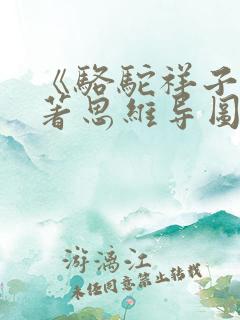 《駱駝祥子
著思維导圖
游漓江
未經同意禁止转載